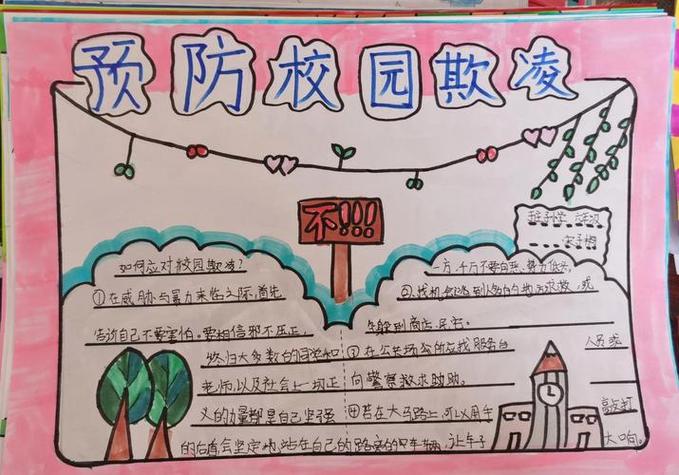 预防校园欺凌
不!!!
六年级
如何应对校园欺凌?
①在威胁与暴力来临之际,首先
告诉自己不要害怕。要相信邪不压正,
终归大多数的同学和
老师,以及社会上一切正
义的力量都是自己坚强
的后盾,会坚定地站在自己的
一方,千万不要向恶势力低头,
②找机会逃到人多的地方求救,或
先躲到商店
③在公共场合应找服务台
人员或
向警察救求助
④若在大马路上,可以用手
敲打
车辆,让车子